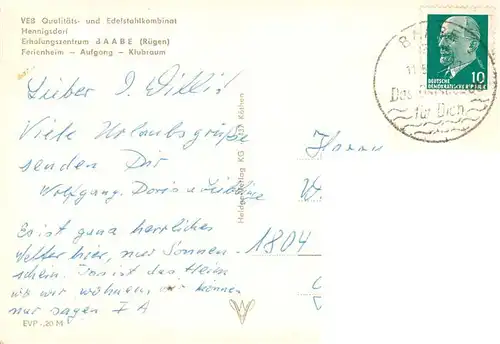 VEB Qualitäts- und Edelstahlkombinat
Hennigsdorf
Erholungszentrum BAABE (Rügen)
Ferienheim — Aufgang — Klubraum
Lieber I. Willi!
Viele Urlaubsgrüße
senden Dir
Wolfgang, Doris u.
Es ist ganz herrliches
Wetter hier, nur Sonnen-
schein. Das ist das Heim
wo wir wohnen, wir können
nur sagen I A
EVP -,20 M
Herrn
W.
1804
10
DEUTSCHE
DEMOKRATISCHE REPUBLIK
für Dich